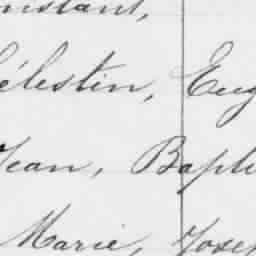 onstant,
Célestin, Eug
Jean, Bapti
Marie, Josep